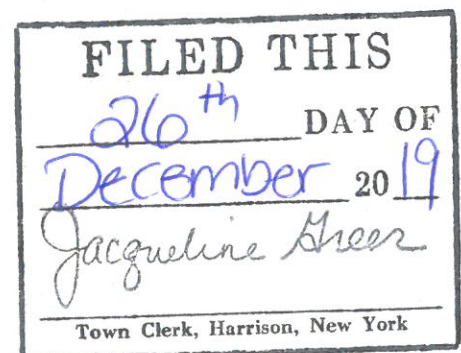 FILED THIS
26th DAY OF
December 2019
Jacqueline Greer
Town Clerk, Harrison, New York